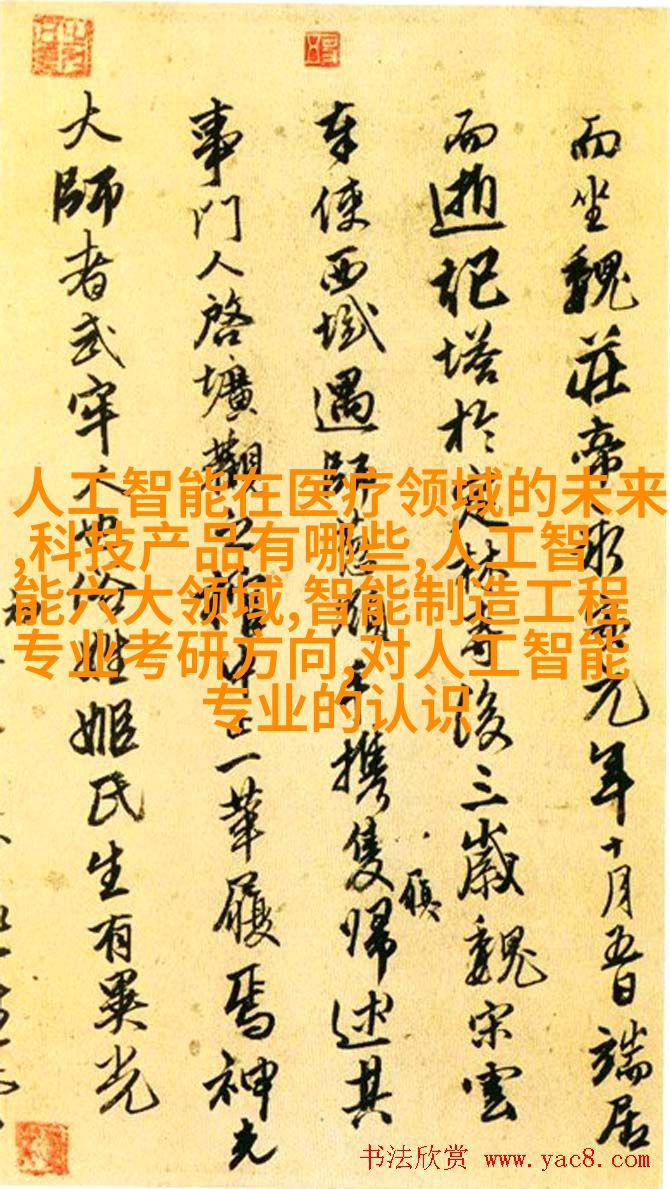 而坐魏莊帝永安元年十月五日端居
而逝記塔於定林寺後三歲魏宋雲
奉使西域遇師葱嶺手攜隻履歸述其
事門人啓壙觀之一革履焉神光
大師者武牢人也俗姓姬氏生有異光
人工智能在医疗领域的未来
,科技产品有哪些,人工智
能六大领域,智能制造工程
专业考研方向,对人工智能
专业的认识
书法欣赏 www.yac8.com